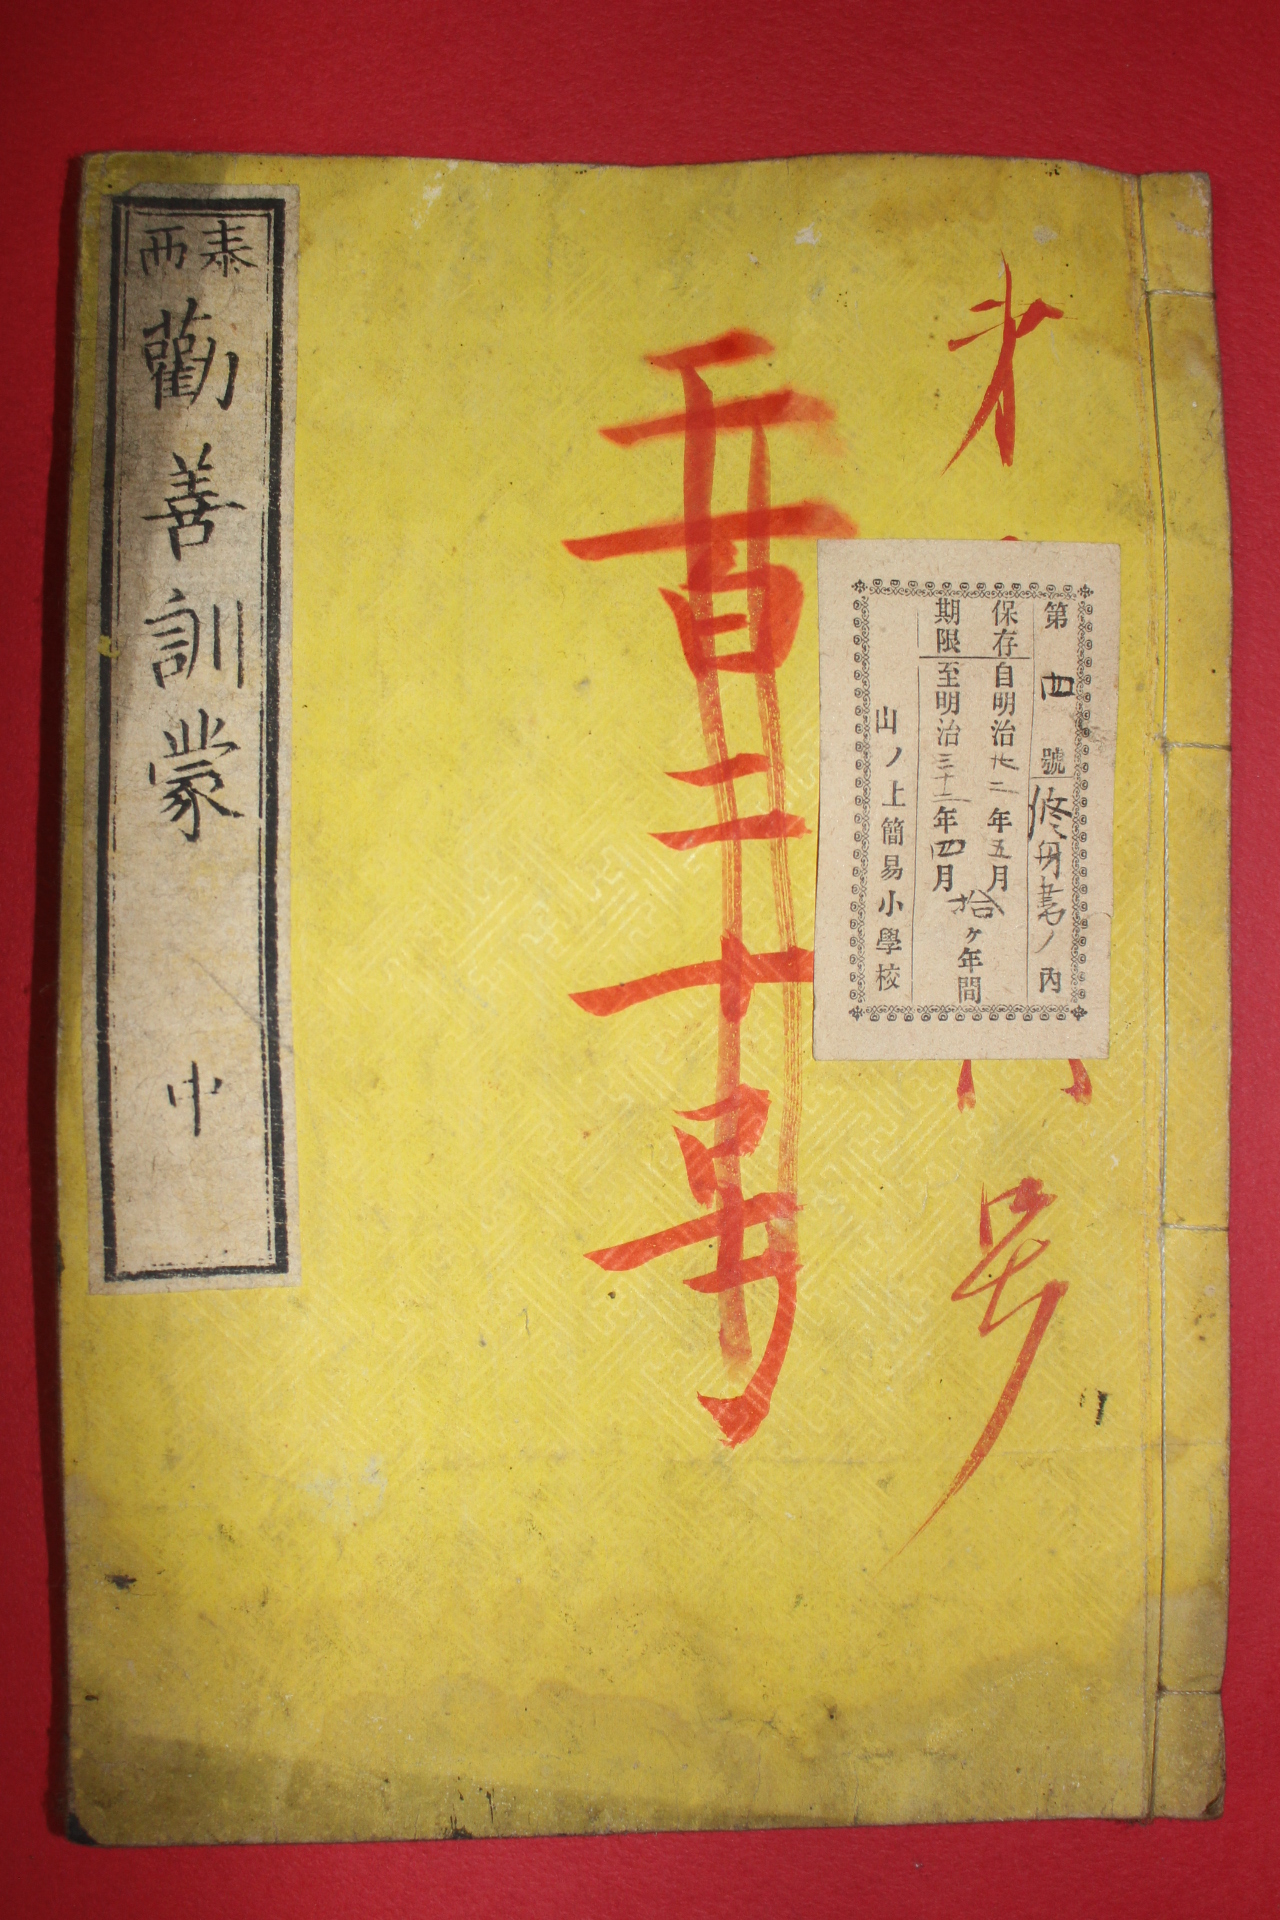 第四號修身書ノ內
保存自明治廿二年五月
期限至明治三十二年四月
拾ヶ年間
山ノ上簡易小學校
号
百二十号
泰西
勸善訓蒙
中